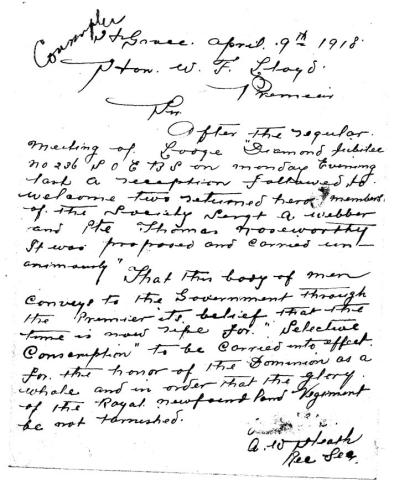 Conscription
Hr Grace. april. 9th 1918
Hon. W. F. Lloyd.
Premier
Sir
After the regular.
meeting of Lodge "Diamond Jubilee
no 236 S O E B S on monday Evening
last a reception followed to.
welcome two returned heros members
of the Society Sergt A Webber
and Pte Thomas noseworthy
It was proposed and carried un
animously "That this body of men
conveys to the Government through
the Premier its belief that the
time is now ripe for. "Selective
Conscription" to be carried into effect.
for. the honor of the Dominion as a
whale and in order that the glory.
of the Royal newfound land Regiment
be not tarnished.
A. W Heath
Rec Sec.